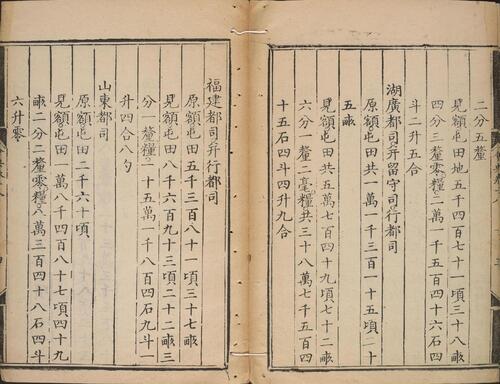 二分五釐
見額屯田地五千四百七十一頃三十八畞
四分三釐零糧二萬一千五百四十六石四
斗二升五合
湖廣都司并留守司行都司
原額屯田共一萬一千三百一十五頃二十
五畞
見額屯田共五萬七百四十九頃七十二畞
六分一釐二毫糧共三十八萬七千五百四
十五石四斗四升九合
福建都司并行都司
原額屯田五千三百八十一頃三十七畞
見額屯田八千六百九十三頃二十二畞三
分一釐糧二十五萬一千八百四石九斗一
升四合八勺
山東都司
原額屯田二千六十頃
見額屯田一萬八千四百八十七頃四十九
畞二分二釐零糧八萬三百四十八石四斗
六升零